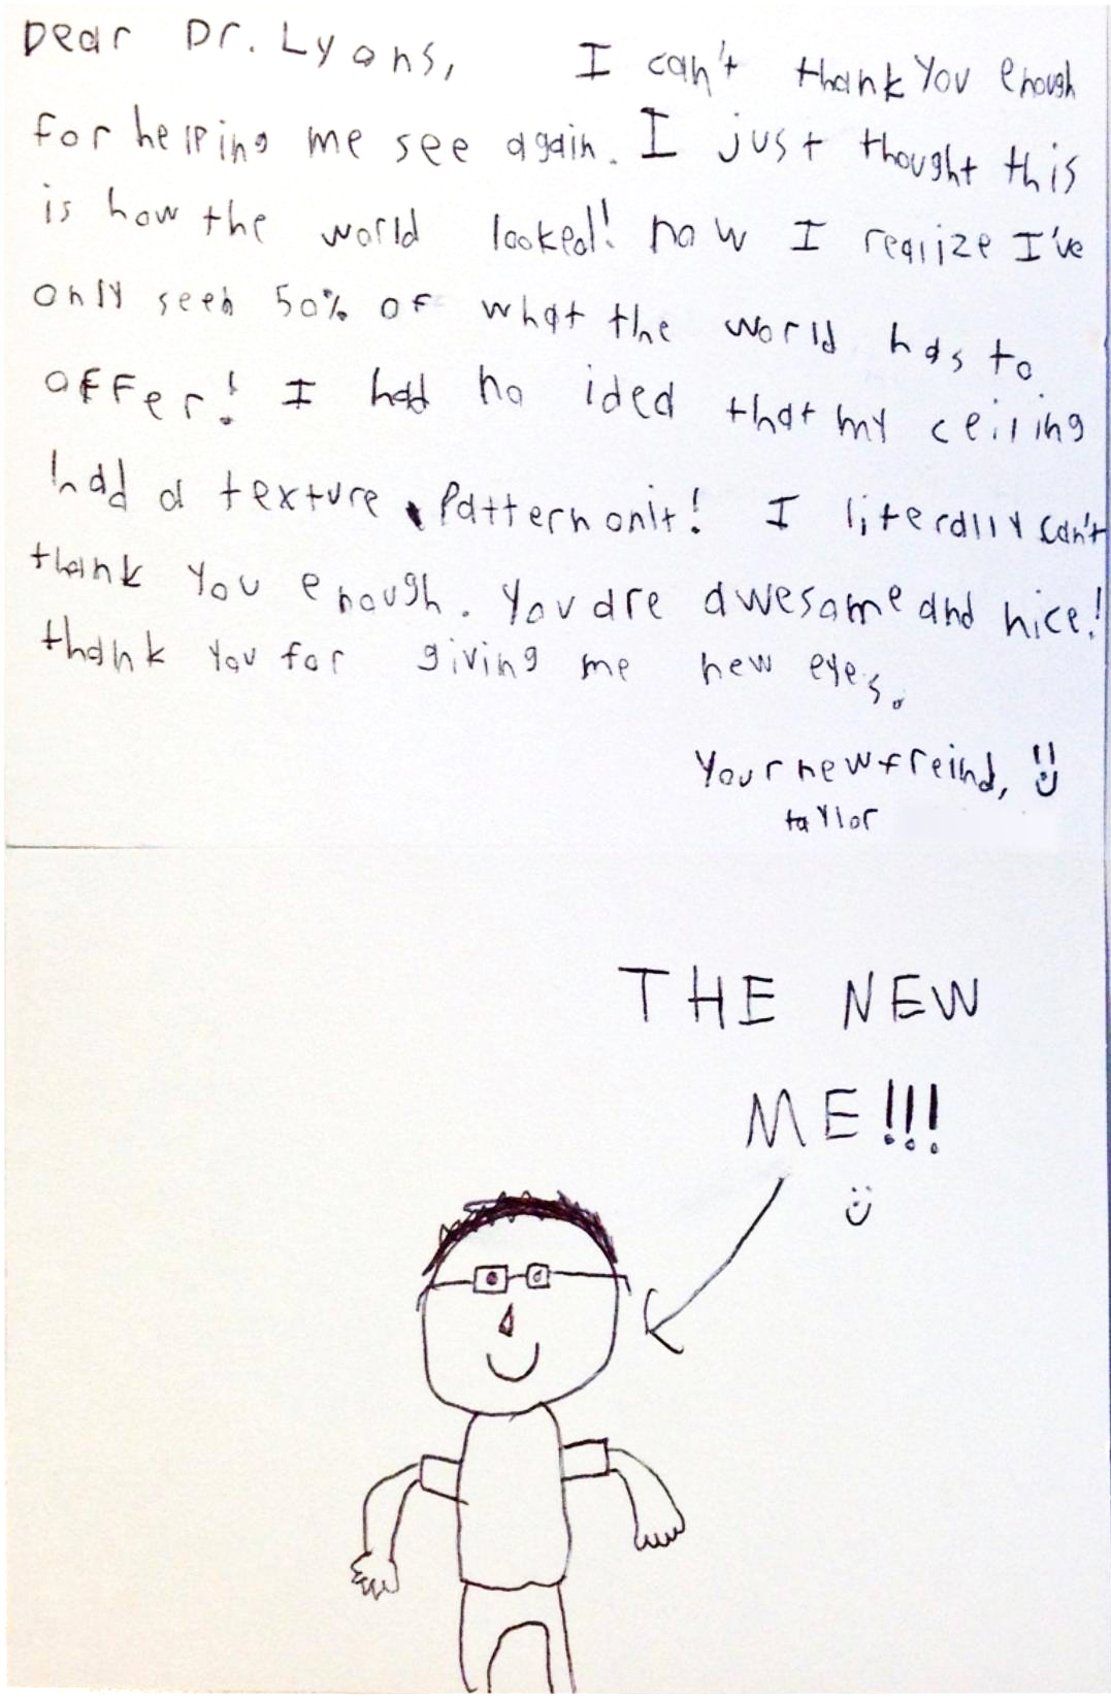 Dear Dr. Lyons, I can't thank you enough
for helping me see again. I just thought this
is how the world looked! now I realize I've
only seen 50% of what the world has to
offer! I had no idea that my ceiling
had a texture pattern on it! I literally can't
thank you enough. You are awesome and nice!
thank you for giving me new eyes.
Your new freind, :)
taylor
THE NEW
ME!!!
:)